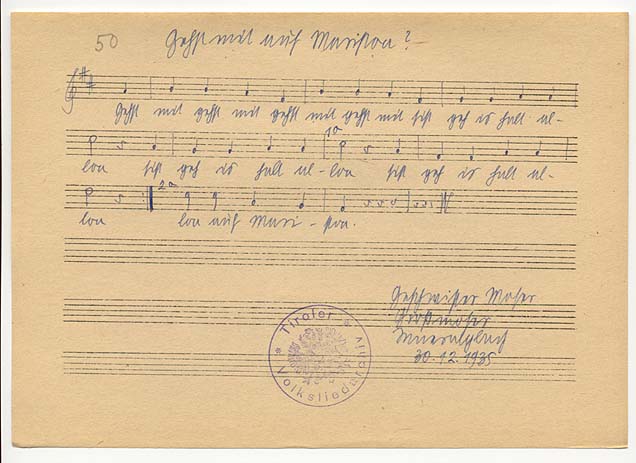 50 Gehst mit auf Mariston?
Gehst mit gehst mit gehst mit gehst mit sist geh is halt al-
loa sist geh is halt al- loa sist geh is halt al-
loa loa auf Mari - ston.
Geschwister Moser
30.12.1935
* Tiroler *
Volksliederarchiv